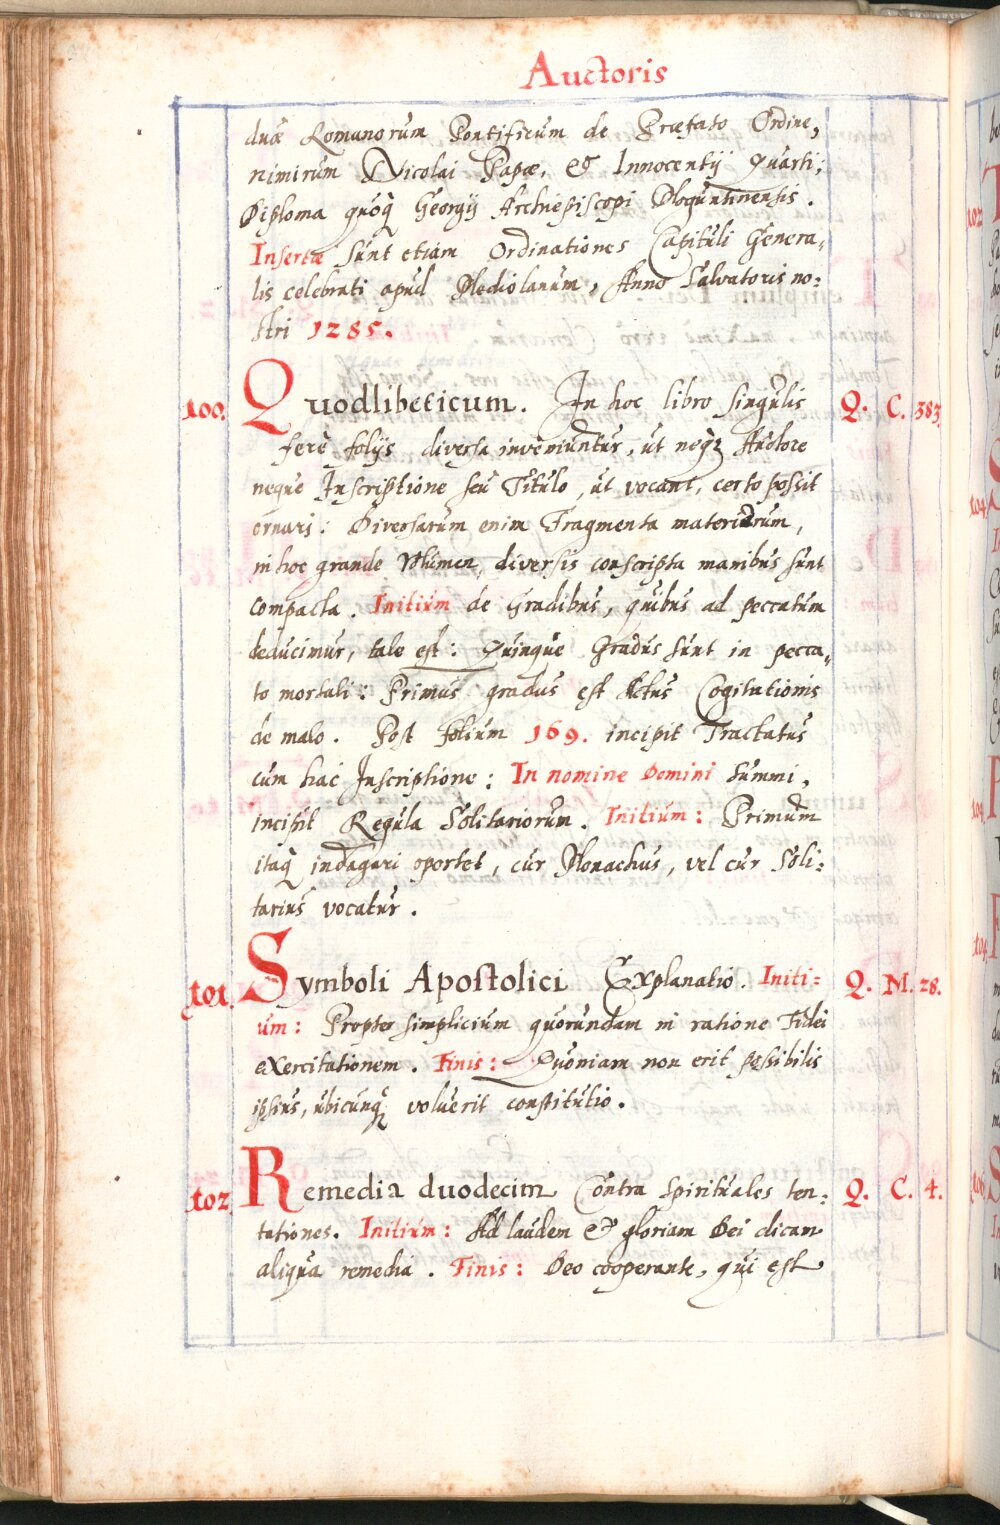 Auctoris
duæ Romanorum Pontificum de Præfato Ordine,
nimirum Nicolai Papæ, & Innocentij Quarti;
Diploma quoq̀ Georgij Archiepiscopi Moguntinensis.
Insertæ sunt etiam Ordinationes Capituli Genera„
lis celebrati apud Mediolanum, Anno Salvatoris no:
stri 1285.
100. Quodlibeticum. In hoc libro singulis Q. C. 383.
ferè folijs diversa inveniuntur, ut neqz Auctore
neque Inscriptione seu Titulo, ut vocant, certo possit
ornari: Diversarum enim Fragmenta materiarum,
in hoc grande Volumen, diversis conscripta manibus sunt
compacta. Initium de Gradibus, quibus ad peccatum
deducimur, tale est: Quinque Gradus sunt in pecca„
to mortali: Primus gradus est Actus Cogitationis
de malo. Post folium 169. incipit Tractatus
cum hac Inscriptione: In nomine Domini summi,
incipit Regula Solitariorum. Initium: Primum
itaq̀ indagari oportet, cur Monachus, vel cur Soli:
tarius vocatur.
101. Symboli Apostolici Explanatio. Initi= Q. M. 28.
um: Propter simplicium quorundam in ratione Fidei
exercitationem. Finis: Quoniam non erit possibilis
ipsius, ubicunq̀ voluerit constitutio.
102 Remedia duodecim Contra spirituales ten: Q. C. 4.
tationes. Initium: Ad laudem & gloriam Dei dicam
aliqua remedia. Finis: Deo cooperante, qui est